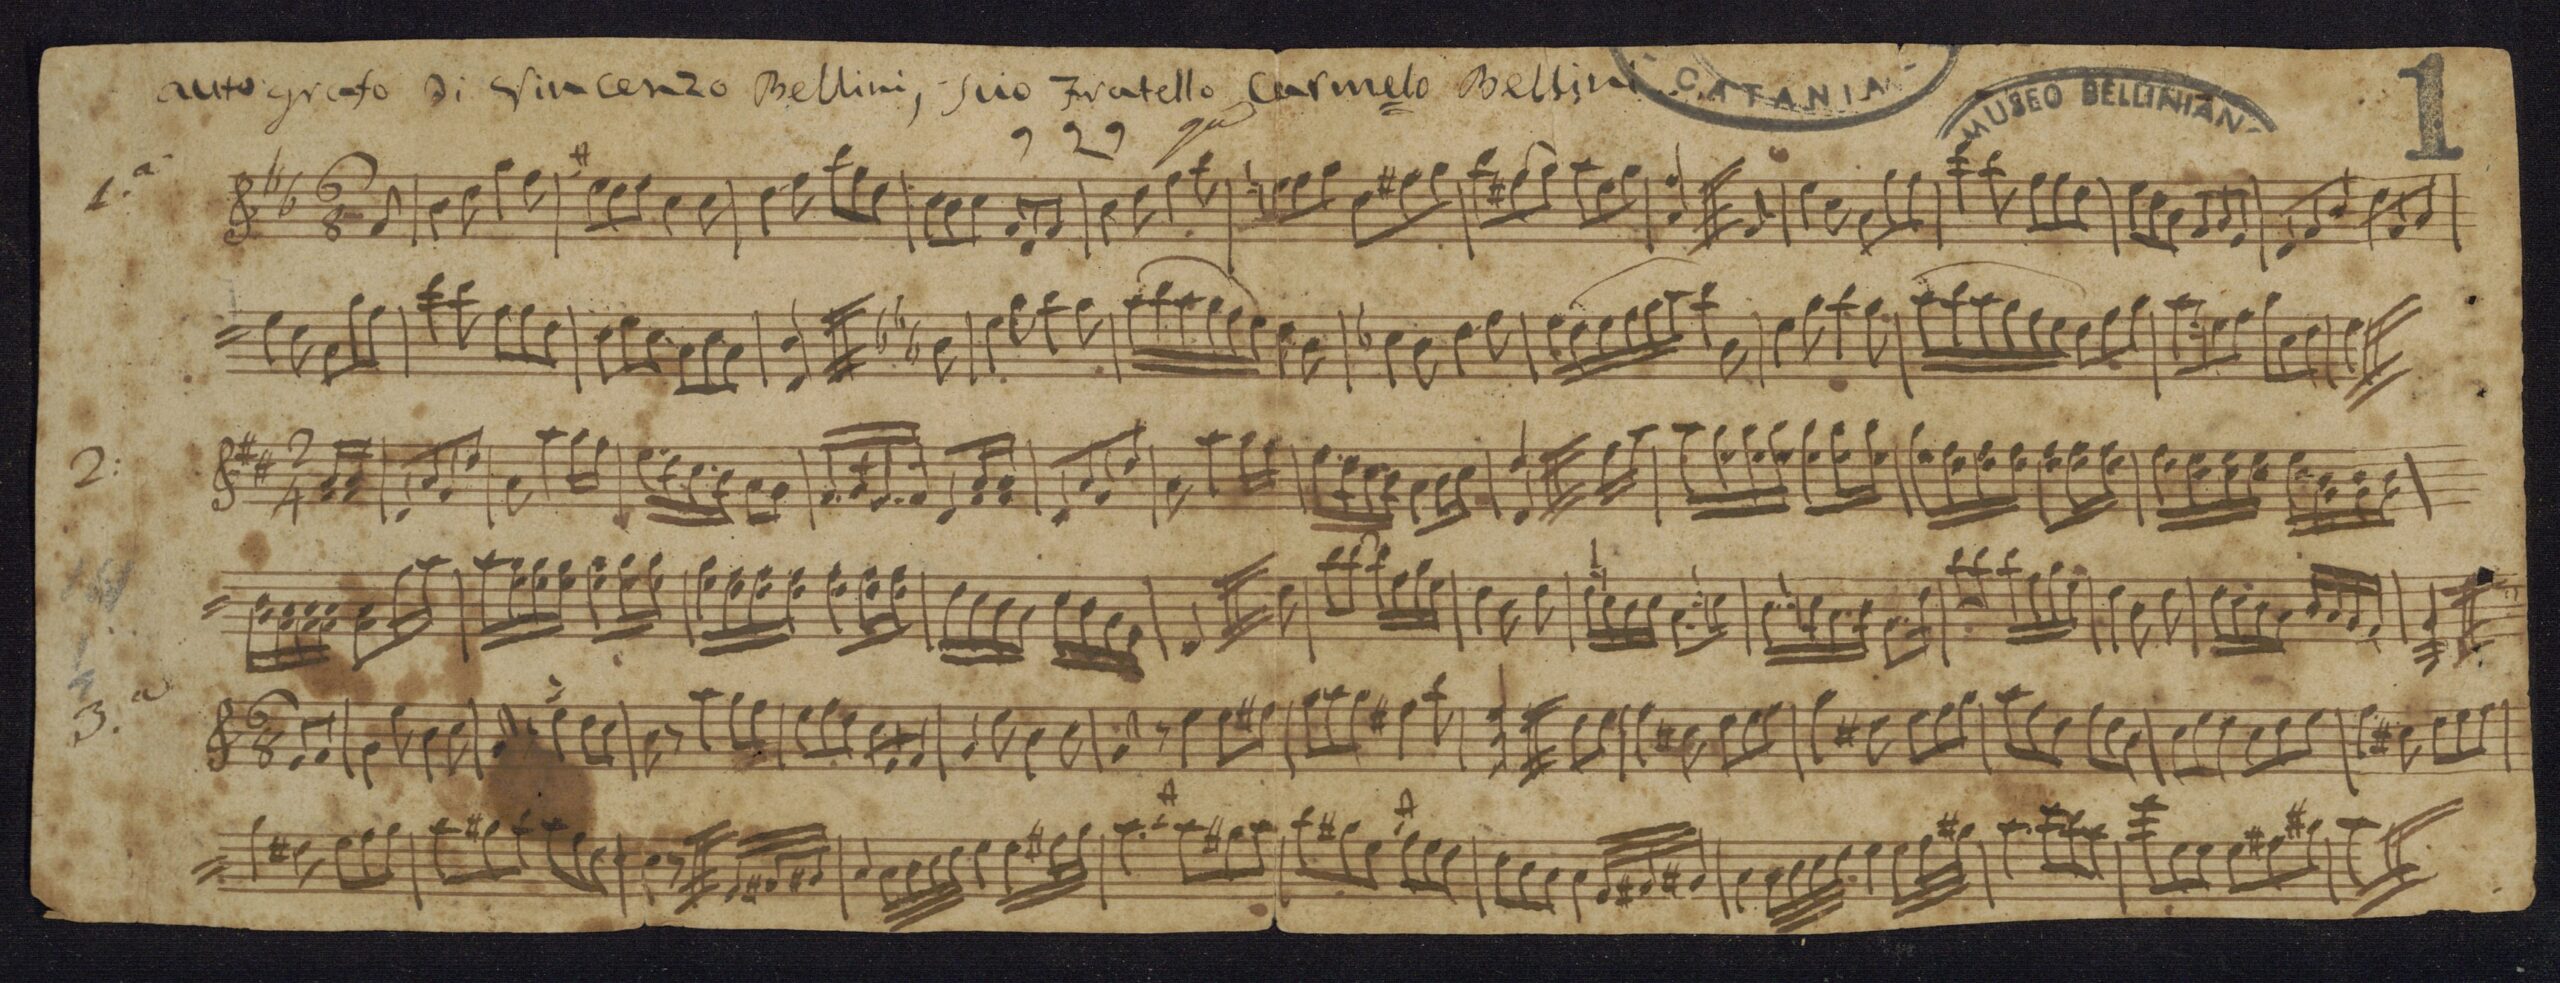 autografo di Vincenzo Bellini, suo Fratello Carmelo Bellini
CATANIA
MUSEO BELLINIAN
1
1.a
6
8
2:
2
4
3.a
6
8